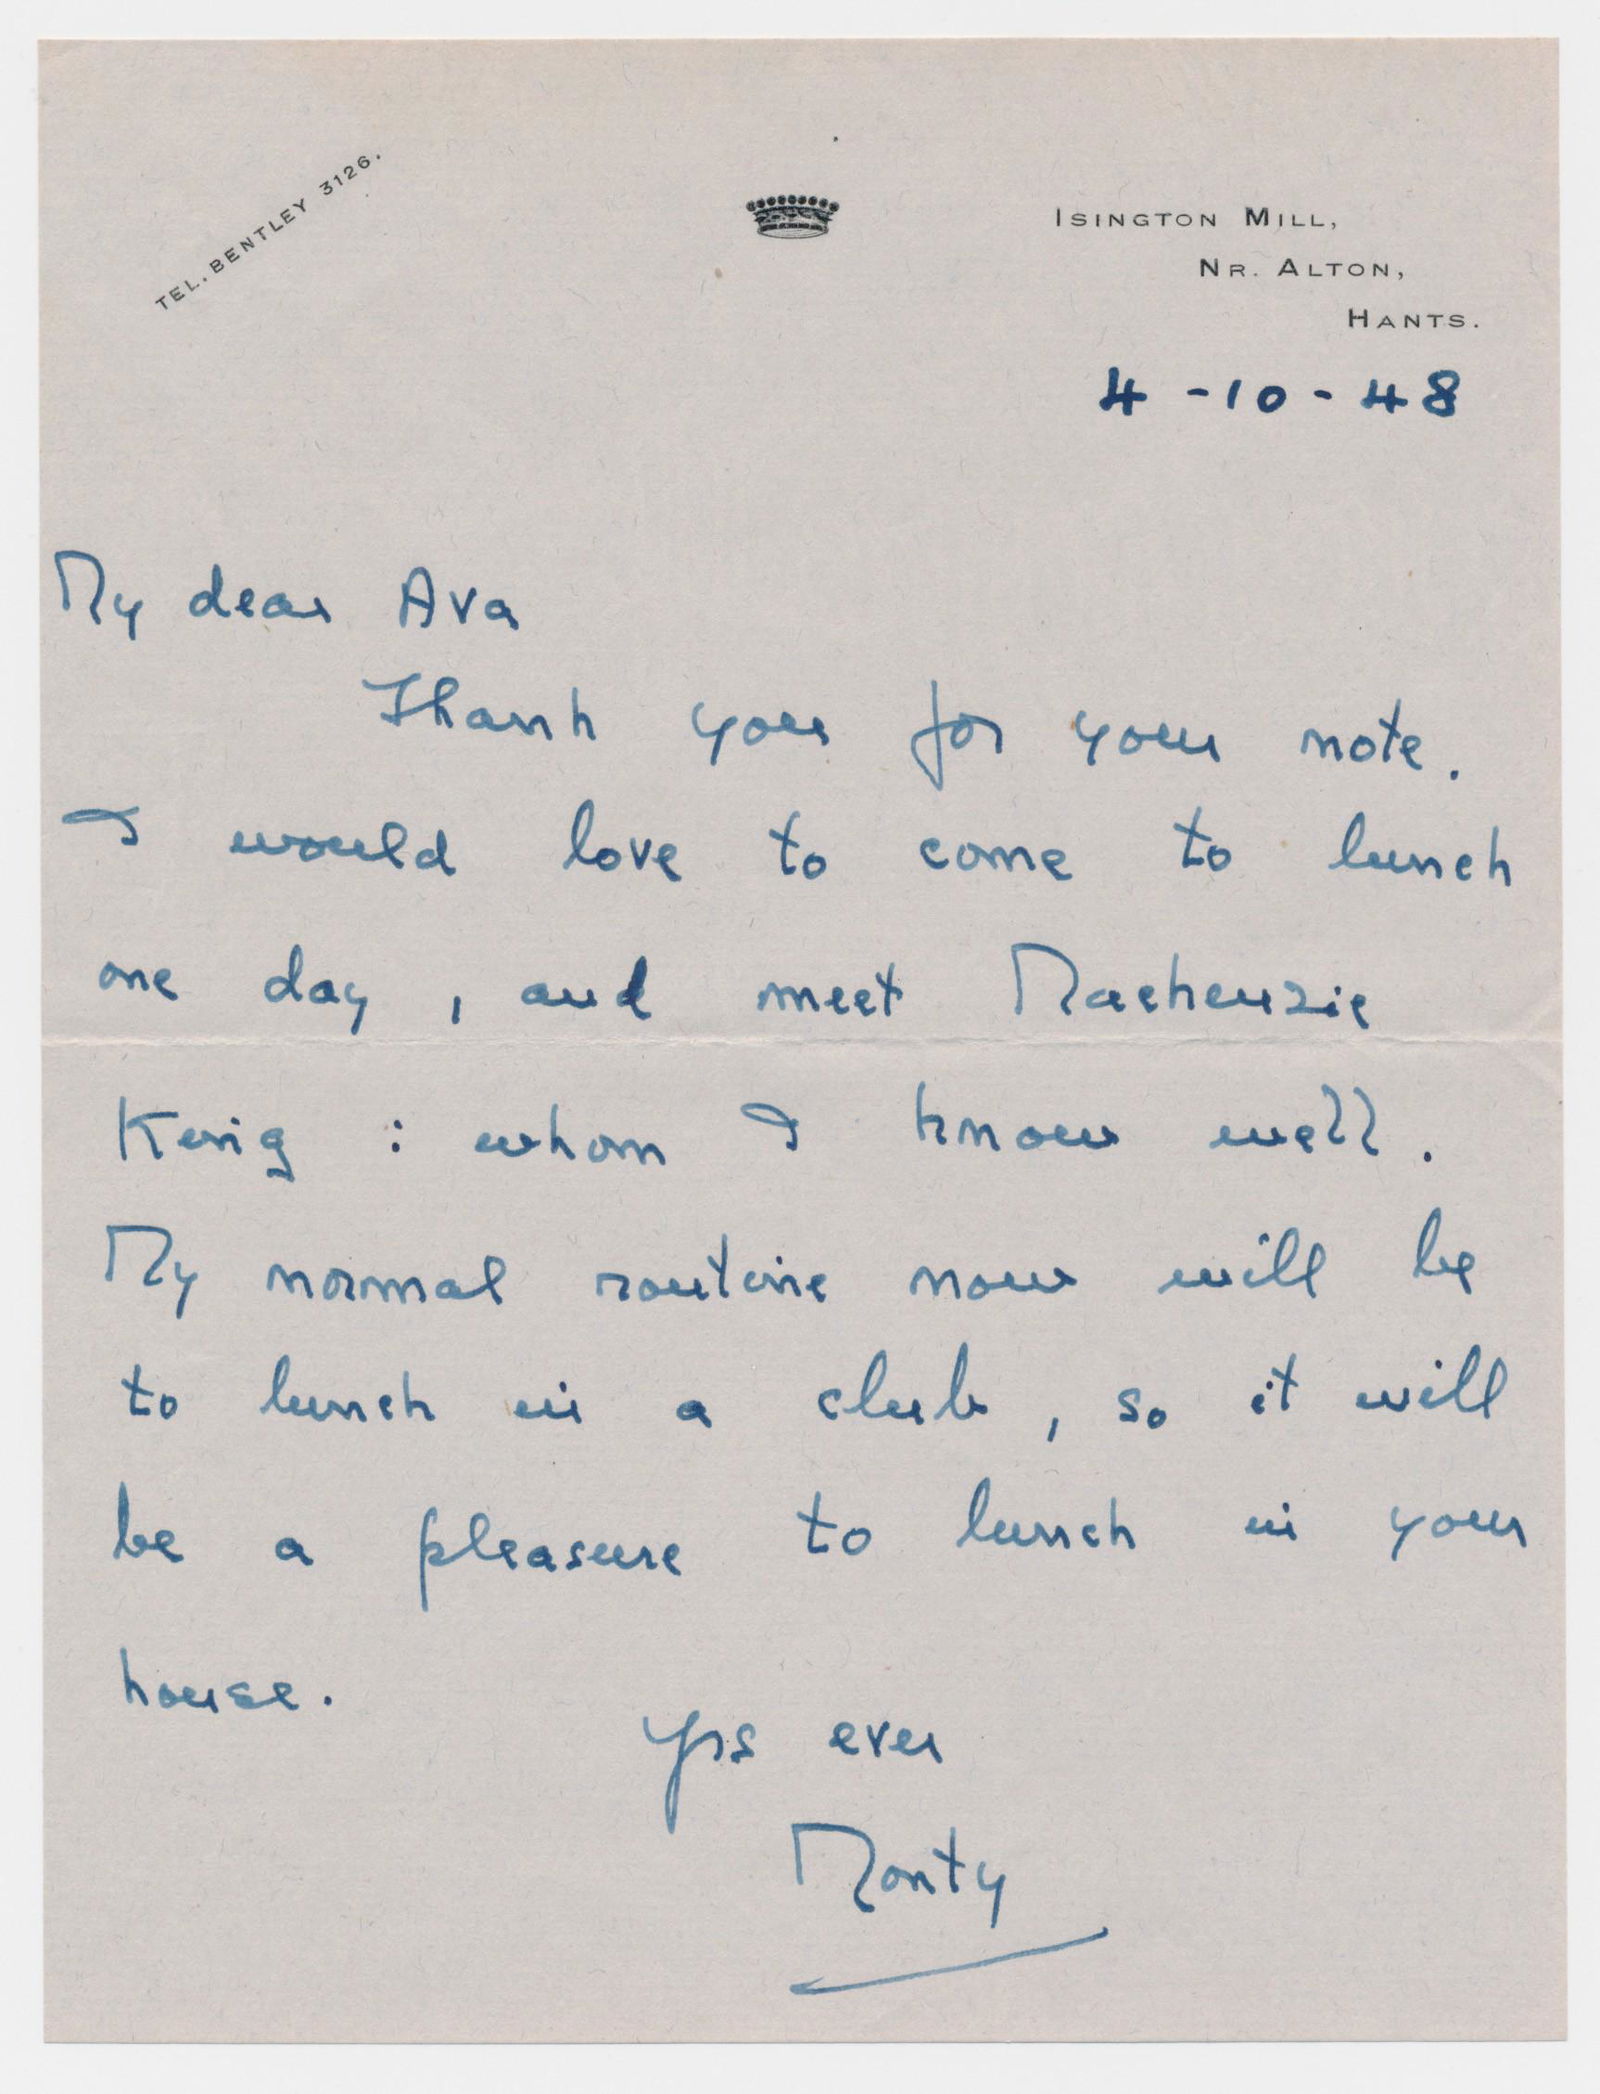 TEL. BENTLEY 3126.
ISINGTON MILL,
NR. ALTON,
HANTS.
4-10-48
My dear Ava
Thank you for your note.
I would love to come to lunch
one day, and meet Mackenzie
King : whom I know well.
My normal routine now will be
to lunch in a club, so it will
be a pleasure to lunch in your
house.
Yrs ever
Monty